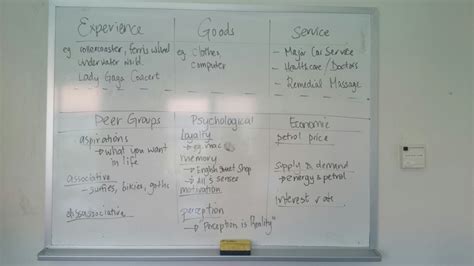 Experience
eg rollercoaster, ferris wheel
underwater world
Lady Gaga Concert
Goods
eg. Clothes
computer
Service
- Major Car Service
- Healthcare / Doctors
- Remedial Massage
Peer Groups
aspirations
→ what you want
in life
associative
- surfies, bikies, goths
disassociative
Psychological
Loyalty
→ eg. mac
memory
→ English Sweet Shop
→ all 5 senses
motivation
perception
→ Perception is Reality"
Economic
petrol price
Supply & demand
→ energy & petrol
Interest rate